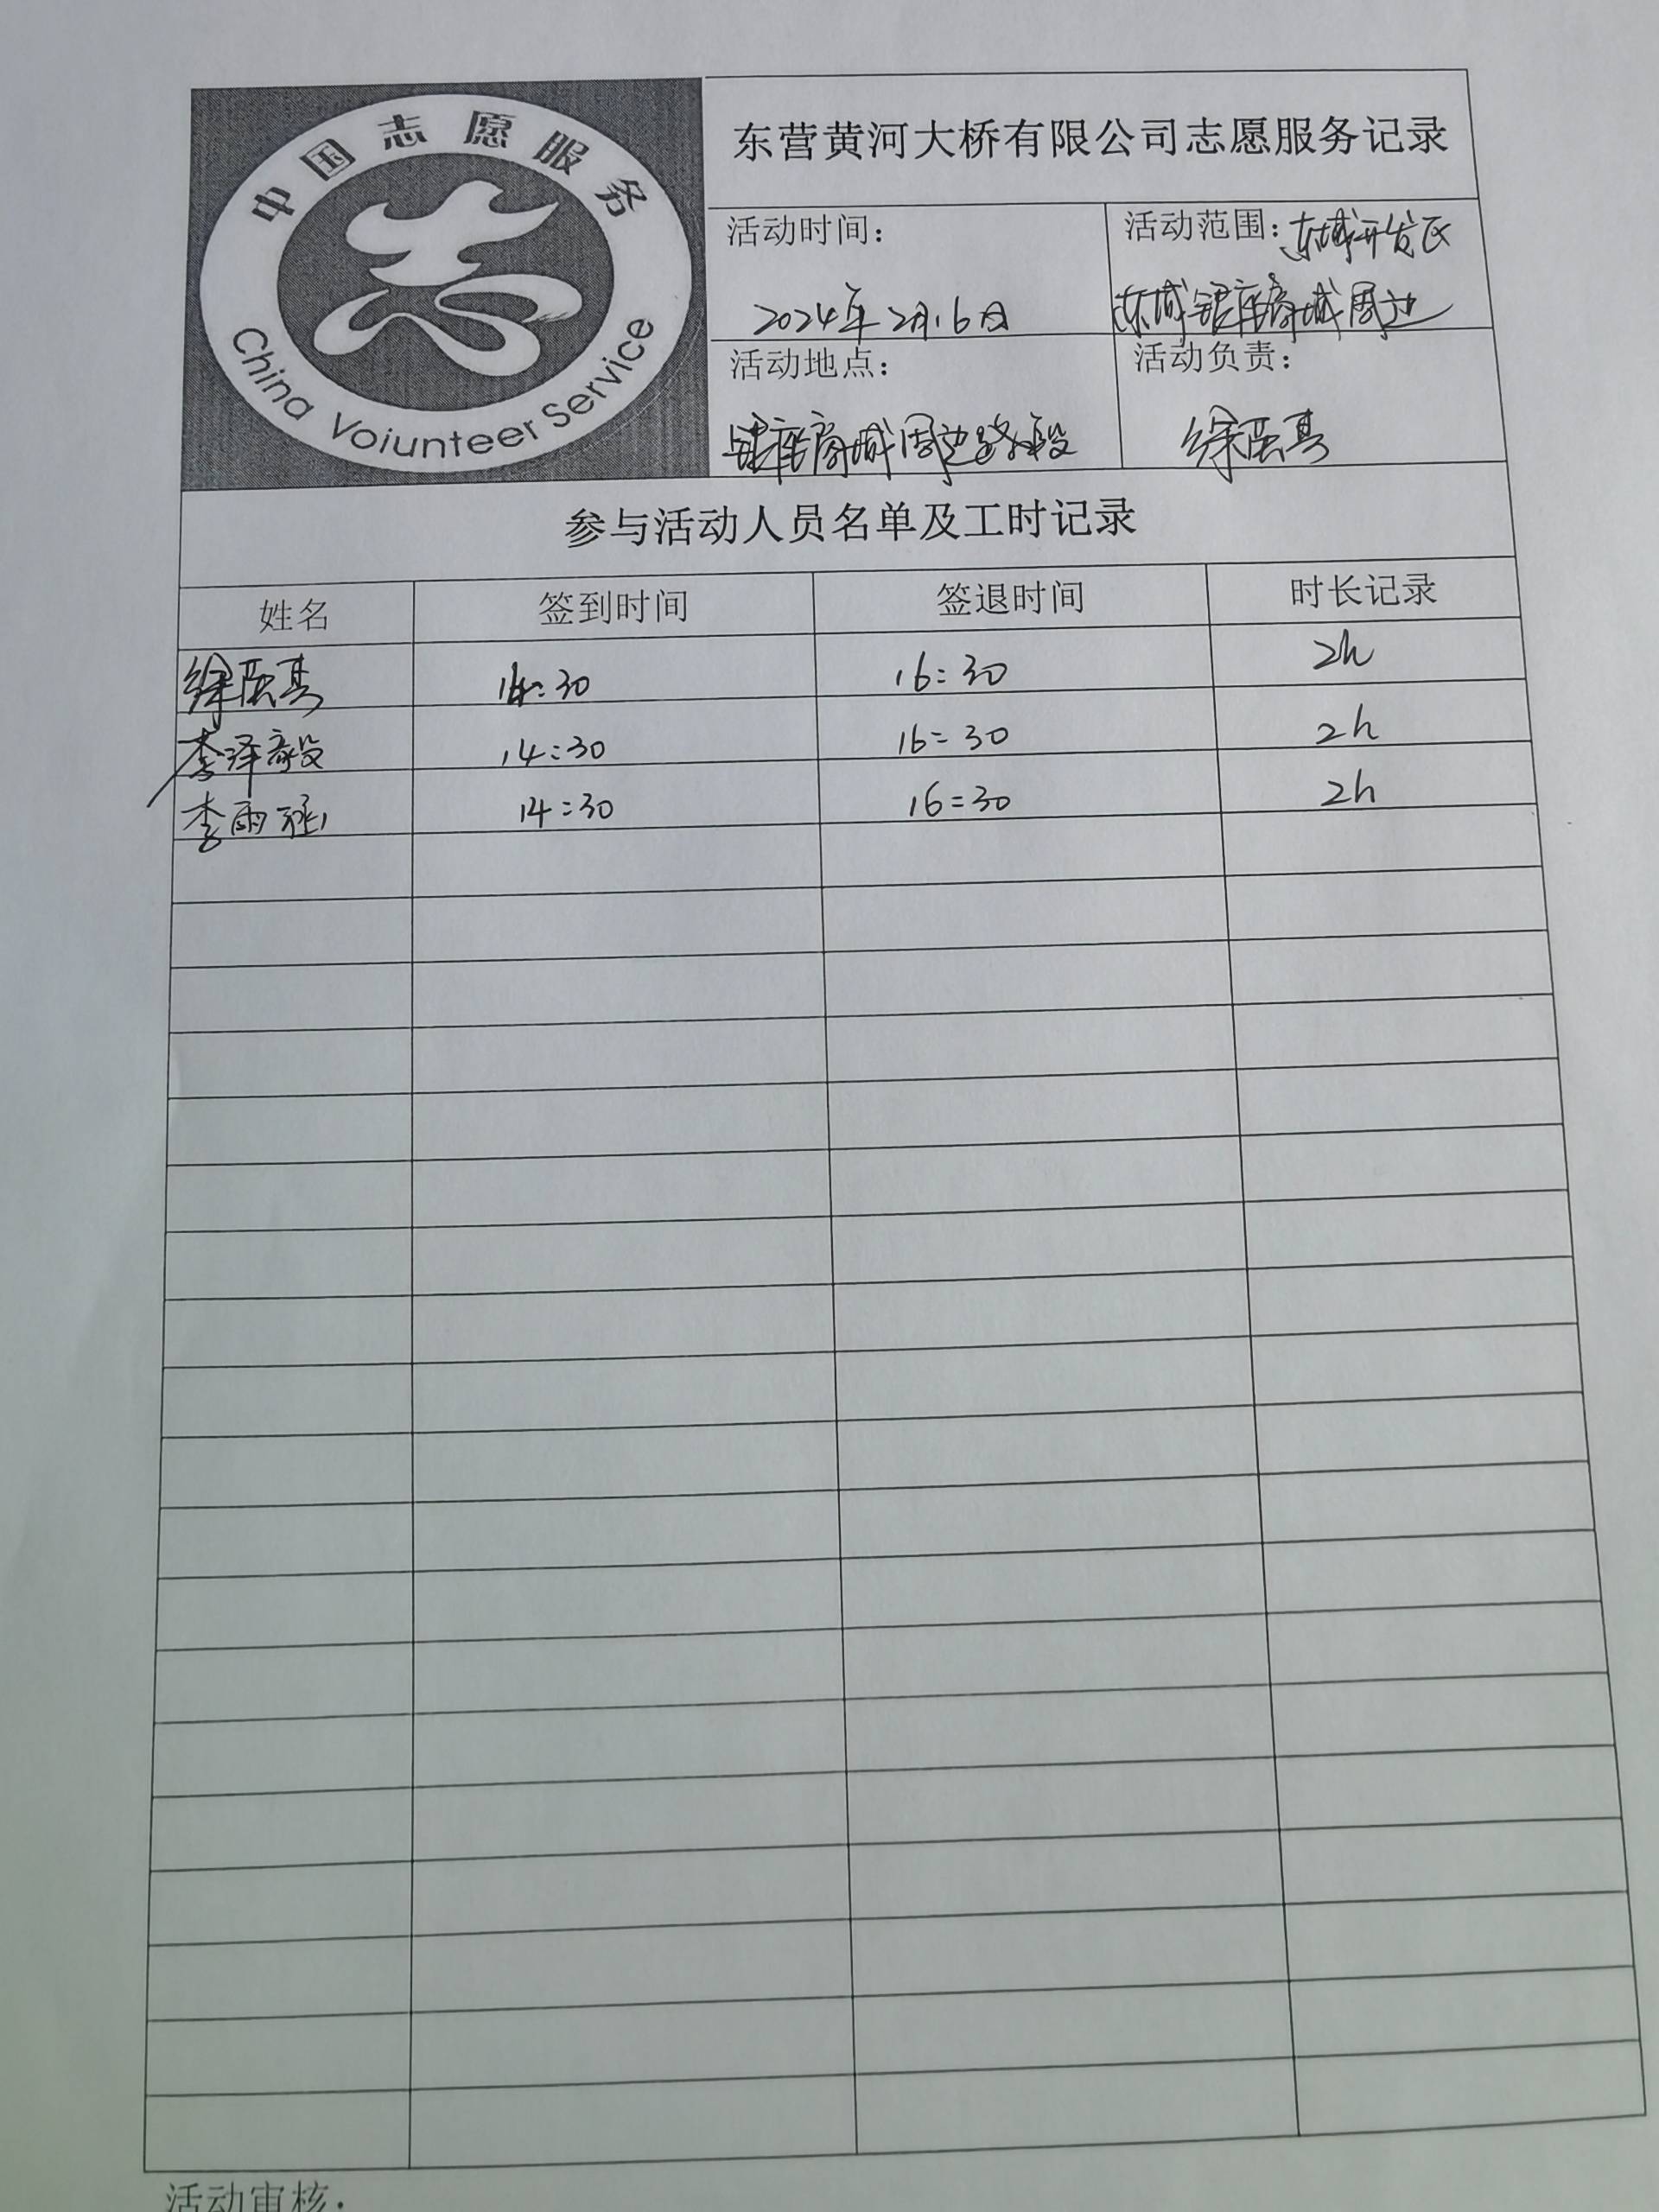 中国志愿服务
China Voiunteer Service
东营黄河大桥有限公司志愿服务记录
活动时间：
2024年2月16日
活动范围：东城开发区
东城银座商城周边
活动地点：
银座商城周边路段
活动负责：
徐
参与活动人员名单及工时记录
姓名 签到时间 签退时间 时长记录
徐 14:30 16:30 2h
李泽毅 14:30 16:30 2h
李雨涵 14:30 16:30 2h
活动审核：